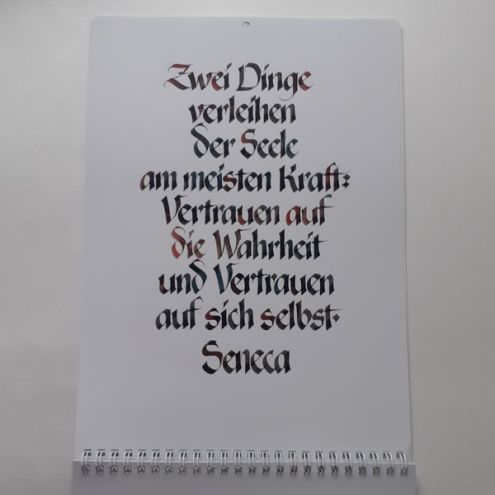 Zwei Dinge
verleihen
der Seele
am meisten Kraft:
Vertrauen auf
die Wahrheit
und Vertrauen
auf sich selbst.
Seneca